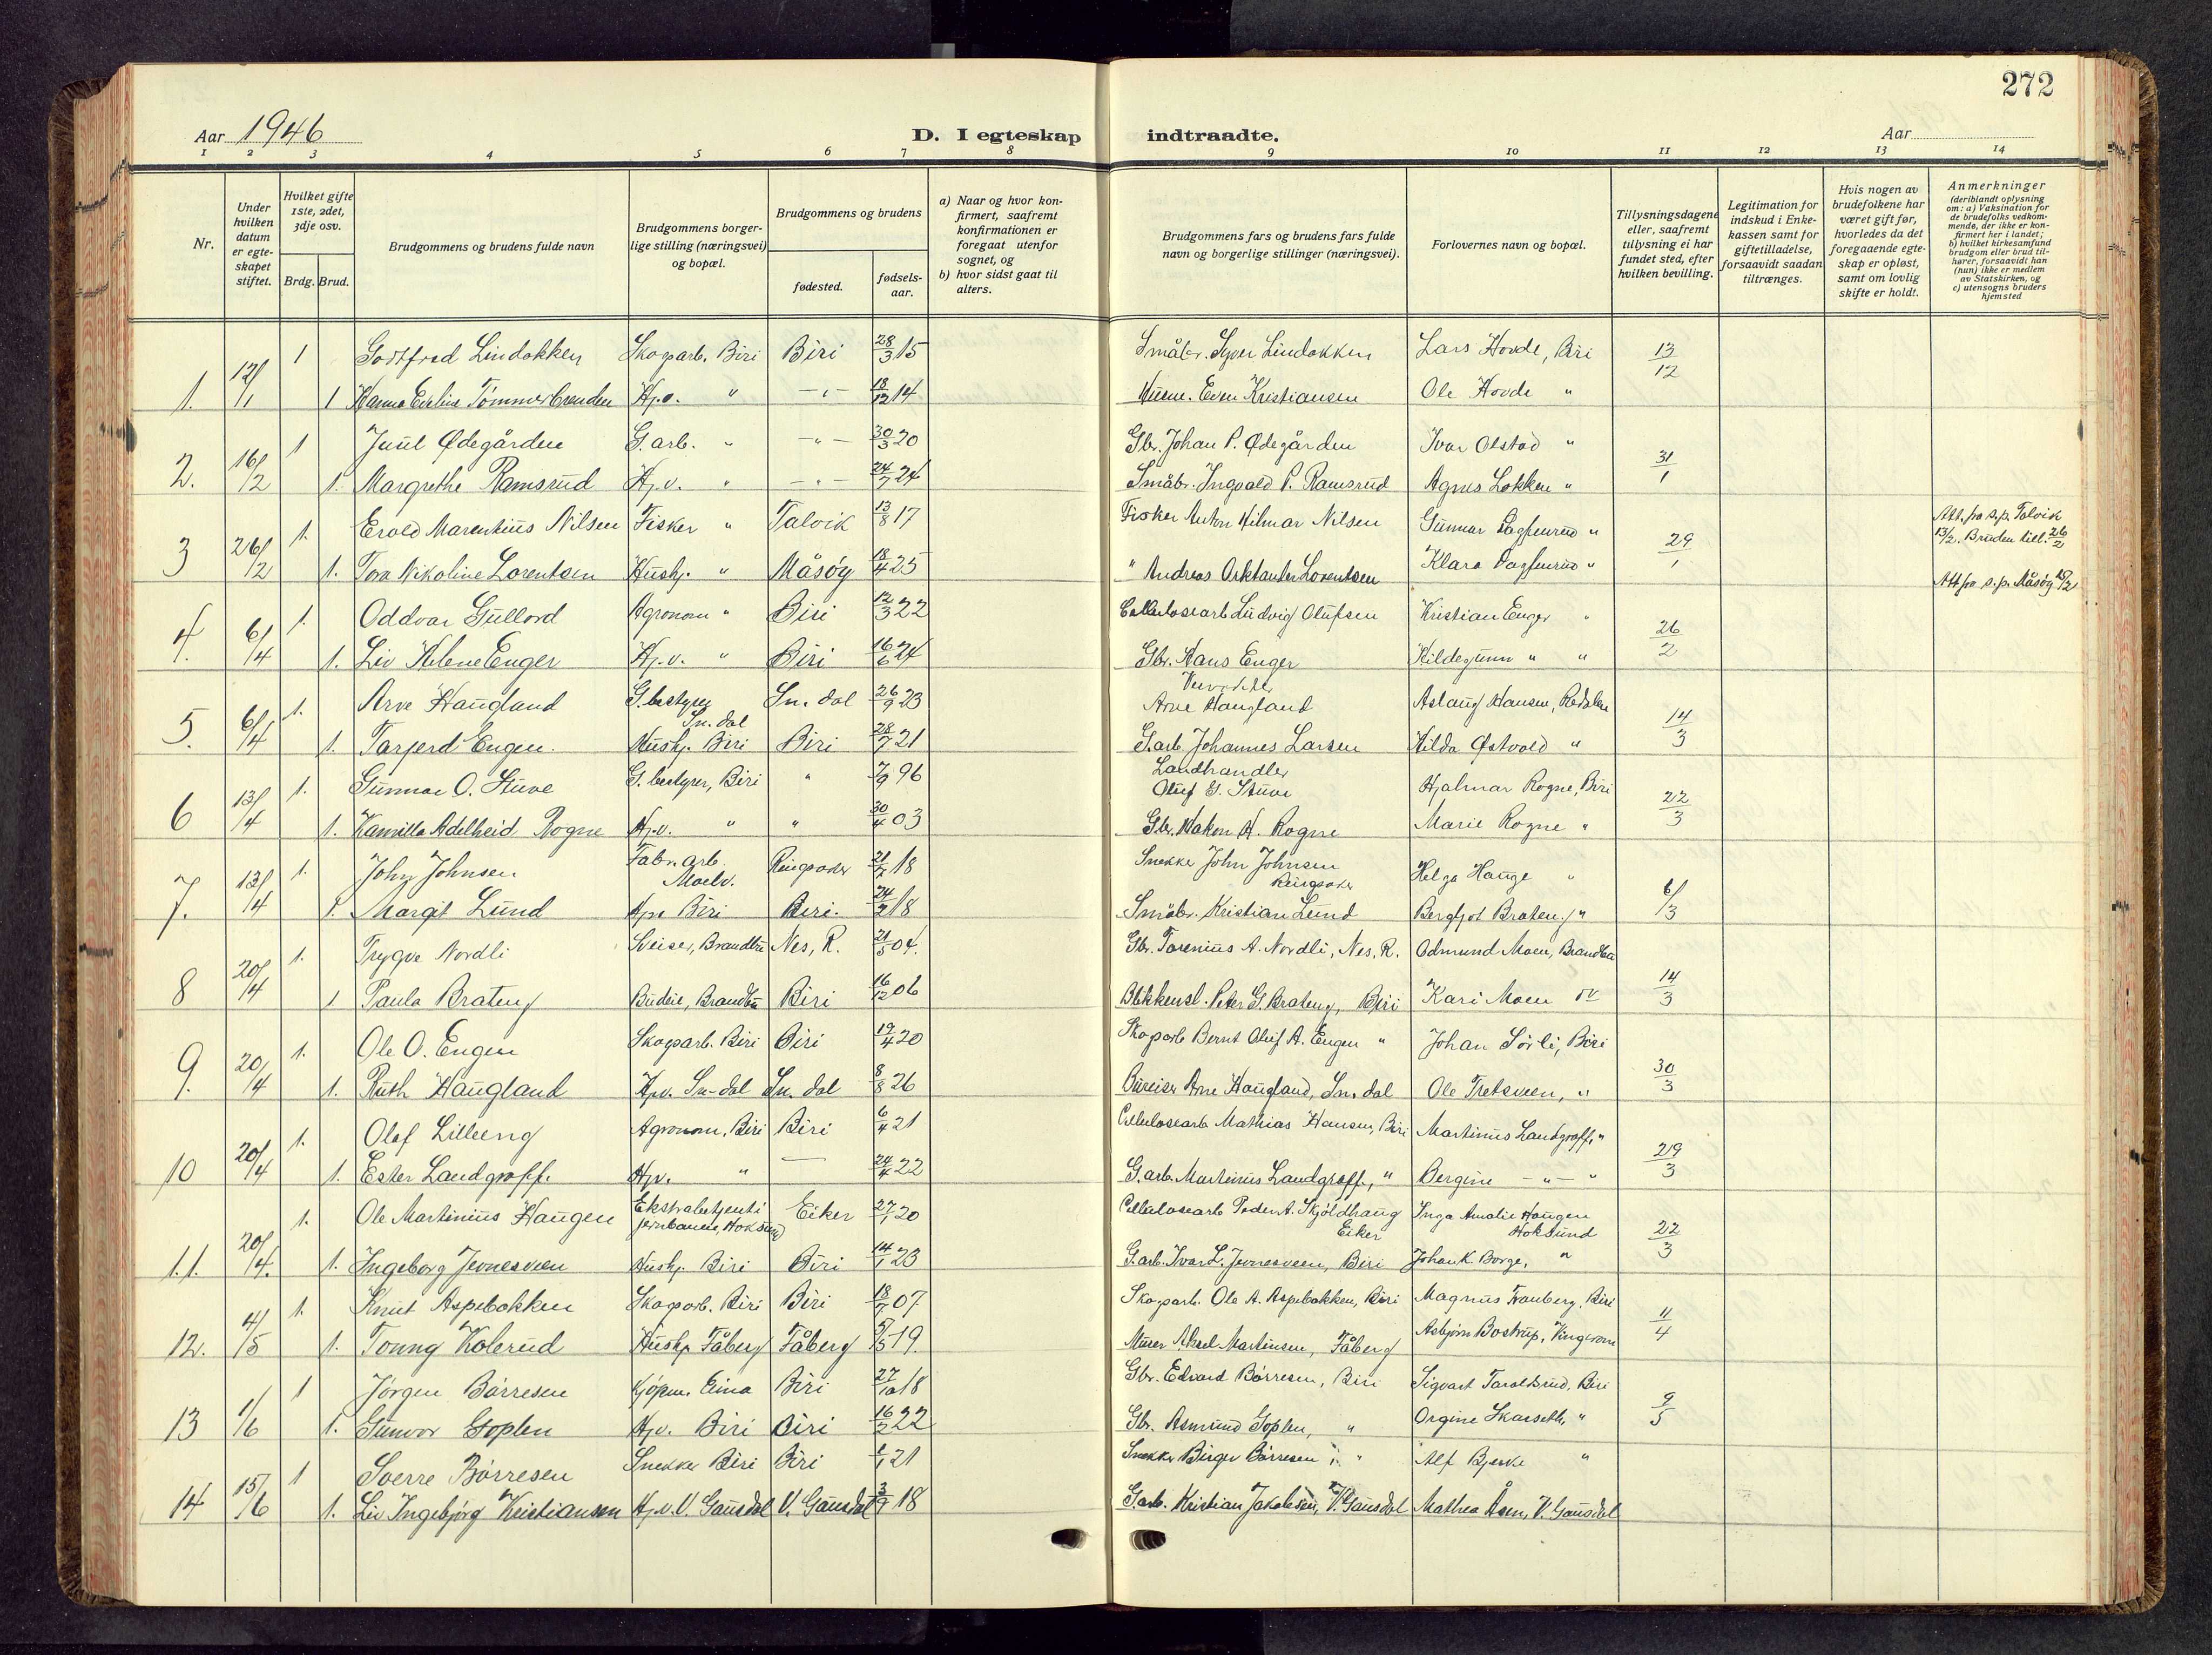 272
Aar 1946
D. I egteskap indtraadte.
Aar
1 2 3 4 5 6 7 8 9 10 11 12 13 14
Nr.
Under hvilken datum er egteskapet stiftet.
Hvilket gifte 1ste, 2det, 3dje osv.
Brdg. Brud.
Brudgommens og brudens fulde navn
Brudgommens borgerlige stilling (næringsvei) og bopæl.
Brudgommens og brudens
fødested.
fødselsaar.
a) Naar og hvor konfirmert, saafremt konfirmationen er foregaat utenfor sognet, og
b) hvor sidst gaat til alters.
Brudgommens fars og brudens fars fulde navn og borgerlige stillinger (næringsvei).
Forlovernes navn og bopæl.
Tillysningsdagene eller, saafremt tillysning ei har fundet sted, efter hvilken bevilling.
Legitimation for indskud i Enkekassen samt for giftetilladelse, forsaavidt saadan tiltrænges.
Hvis nogen av brudefolkene har været gift før, hvorledes da det foregaaende egteskap er opløst, samt om lovlig skifte er holdt.
Anmerkninger (deriblandt oplysning om: a) Vaksination for de brudefolks vedkommende, der ikke er konfirmert her i landet; b) hvilket kirkesamfund brudgom eller brud tilhører, forsaavidt han (hun) ikke er medlem av Statskirken, og c) utensogns bruders hjemsted
1 Gottfred Lindokken Skogarb. Biri Biri 28/3 15 Småbr. Syver Lindokken Lars Hovde, Biri 13/12
1. 12/1 1 Hanna Eveline Tømmerbrenden Hj.v. " - " - 18/12 14 Even Kristiansen Ole Hovde "
1 Juul Ødegården G.arb. " - " - 30/3 20 Gbr. Johan P. Ødegården Ivar Olstad " 31/1
2. 16/2 1. Margrethe Ramsrud Hj.v. " - " - 24/7 24 Småbr. Ingvald P. Ramsrud Agnes Løkken "
1. Erold Marentius Nilsen Fisker " Talvik 13/8 17 Fisker Anton Hilmar Nilsen Gunnar Dagfinrud " 29/1 Att. fra s.p. Talvik 13/2. Bruden till. 26/2
3 26/2 1. Tora Nikoline Lorentsen Hushj. " Måsøy 18/4 25 " Andreas Lorentsen Klara Dagfinrud " Att fra s.p. Måsøy
1. Oddvar Gullord Agronom " Biri 12/3 22 Cellulosearb Ludvig Olufsen Kristian Enger " 26/2
4. 6/4 1. Liv Helene Enger Hj.v. " Biri 16/6 24 Gbr. Hans Enger Hildegunn " "
1. Arve Haugland G.bestyrer Sn. dal Sn. dal 26/9 23 Arne Haugland Aslaug Hansen, Redalen 14/3
5. 6/4 1. Tarjerd Engen. Hushj. Biri Biri 28/7 21 G.arb. Johannes Larsen Hilda Østvold "
1. Gunnar O. Stuve G. bestyrer, Biri " 7/9 96 Landhandler Oluf G. Stuve Hjalmar Rogne, Biri 22/3
6 13/4 1. Kamilla Adelheid Rogne Hj.v. " " 30/4 03 Gbr. Hakon H. Rogne Marie Rogne "
1. John Johnsen Fabr. arb. Moelv. Ringsaker 21/7 18 Snekker John Johnsen Ringsaker Helga Hauge " 6/3
7. 13/4 1. Margit Lund Hjv. Biri Biri. 24/2 18 Småbr. Kristian Lund Bergljot Bråten, "
1. Trygve Nordli Sveiser, Brandbu Nes, R. 21/5 04. Gbr. Torenius A. Nordli, Nes, R. Odmund Moen, Brandbu 14/3
8 20/4 1 Paula Brateng Budeie, Brandbu Biri 16/12 06 Peter G. Brateng, Biri Kari Moen
1. Ole O. Engen Skogarb. Biri Biri 19/4 20 Skogarb Bernt Oluf A. Engen " Johan Sørli, Biri 30/3
9. 20/4 1. Ruth Haugland Hjv. Sn-dal Sn. dal 8/8 26 Bureiser Arne Haugland, Sn. dal Ole Tretsveen, "
1. Olaf Lilleeng Agronom, Biri Biri 6/4 21 Cellulosearb Mathias Hansen, Biri Martinus Landgraff, " 29/3
10 20/4 1. Ester Landgraff. Hjv. " — 24/4 22 G. arb. Martinus Landgraff, " Bergine - " - "
1. Ole Martinius Haugen Ekstrabetjent i jernbanen, Hoksund Eiker 27/1 20 Cellulosearb Peder A. Skjøldhaug Eiker Inga Amalie Haugen Hoksund 22/3
11. 20/4. 1. Ingeborg Jevnesveen Hushj. Biri Biri 14/1 23 G.arb. Ivar L. Jevnesveen, Biri Johan K. Borge, "
1. Knut Aspebakken Skogarb. Biri Biri 18/7 07 Skogarb. Ole A. Aspebakken, Biri Magnus Frauberg, Biri 11/4
12. 4/5 1. Tonny Kolerud Hushj. Fåberg Fåberg 5/5 19. Murer Aksel Martinsen, Fåberg Asbjørn Bostrup, Vingerom
1 Jørgen Børresen Kjøpm. Eina Biri 27/10 18 Gbr. Edvard Børresen, Biri Sigvart Taraldsrud, Biri 9/5
13 1/6 1. Gunvor Goplen Hjv. Biri Biri 16/2 22 Gbr. Asmund Goplen, " Orgine Skarseth, "
1 Sverre Børresen Snekker Biri Biri 21 Snekker Birger Børresen " Alf Bjerke "
14 15/6 1. Liv Ingebjørg Kristiansen Hj.v. V. Gausdal V. Gausdal 3/9 18 G.arb. Kristian Jakobsen, V. Gausdal Mathea Aasen, V. Gausdal